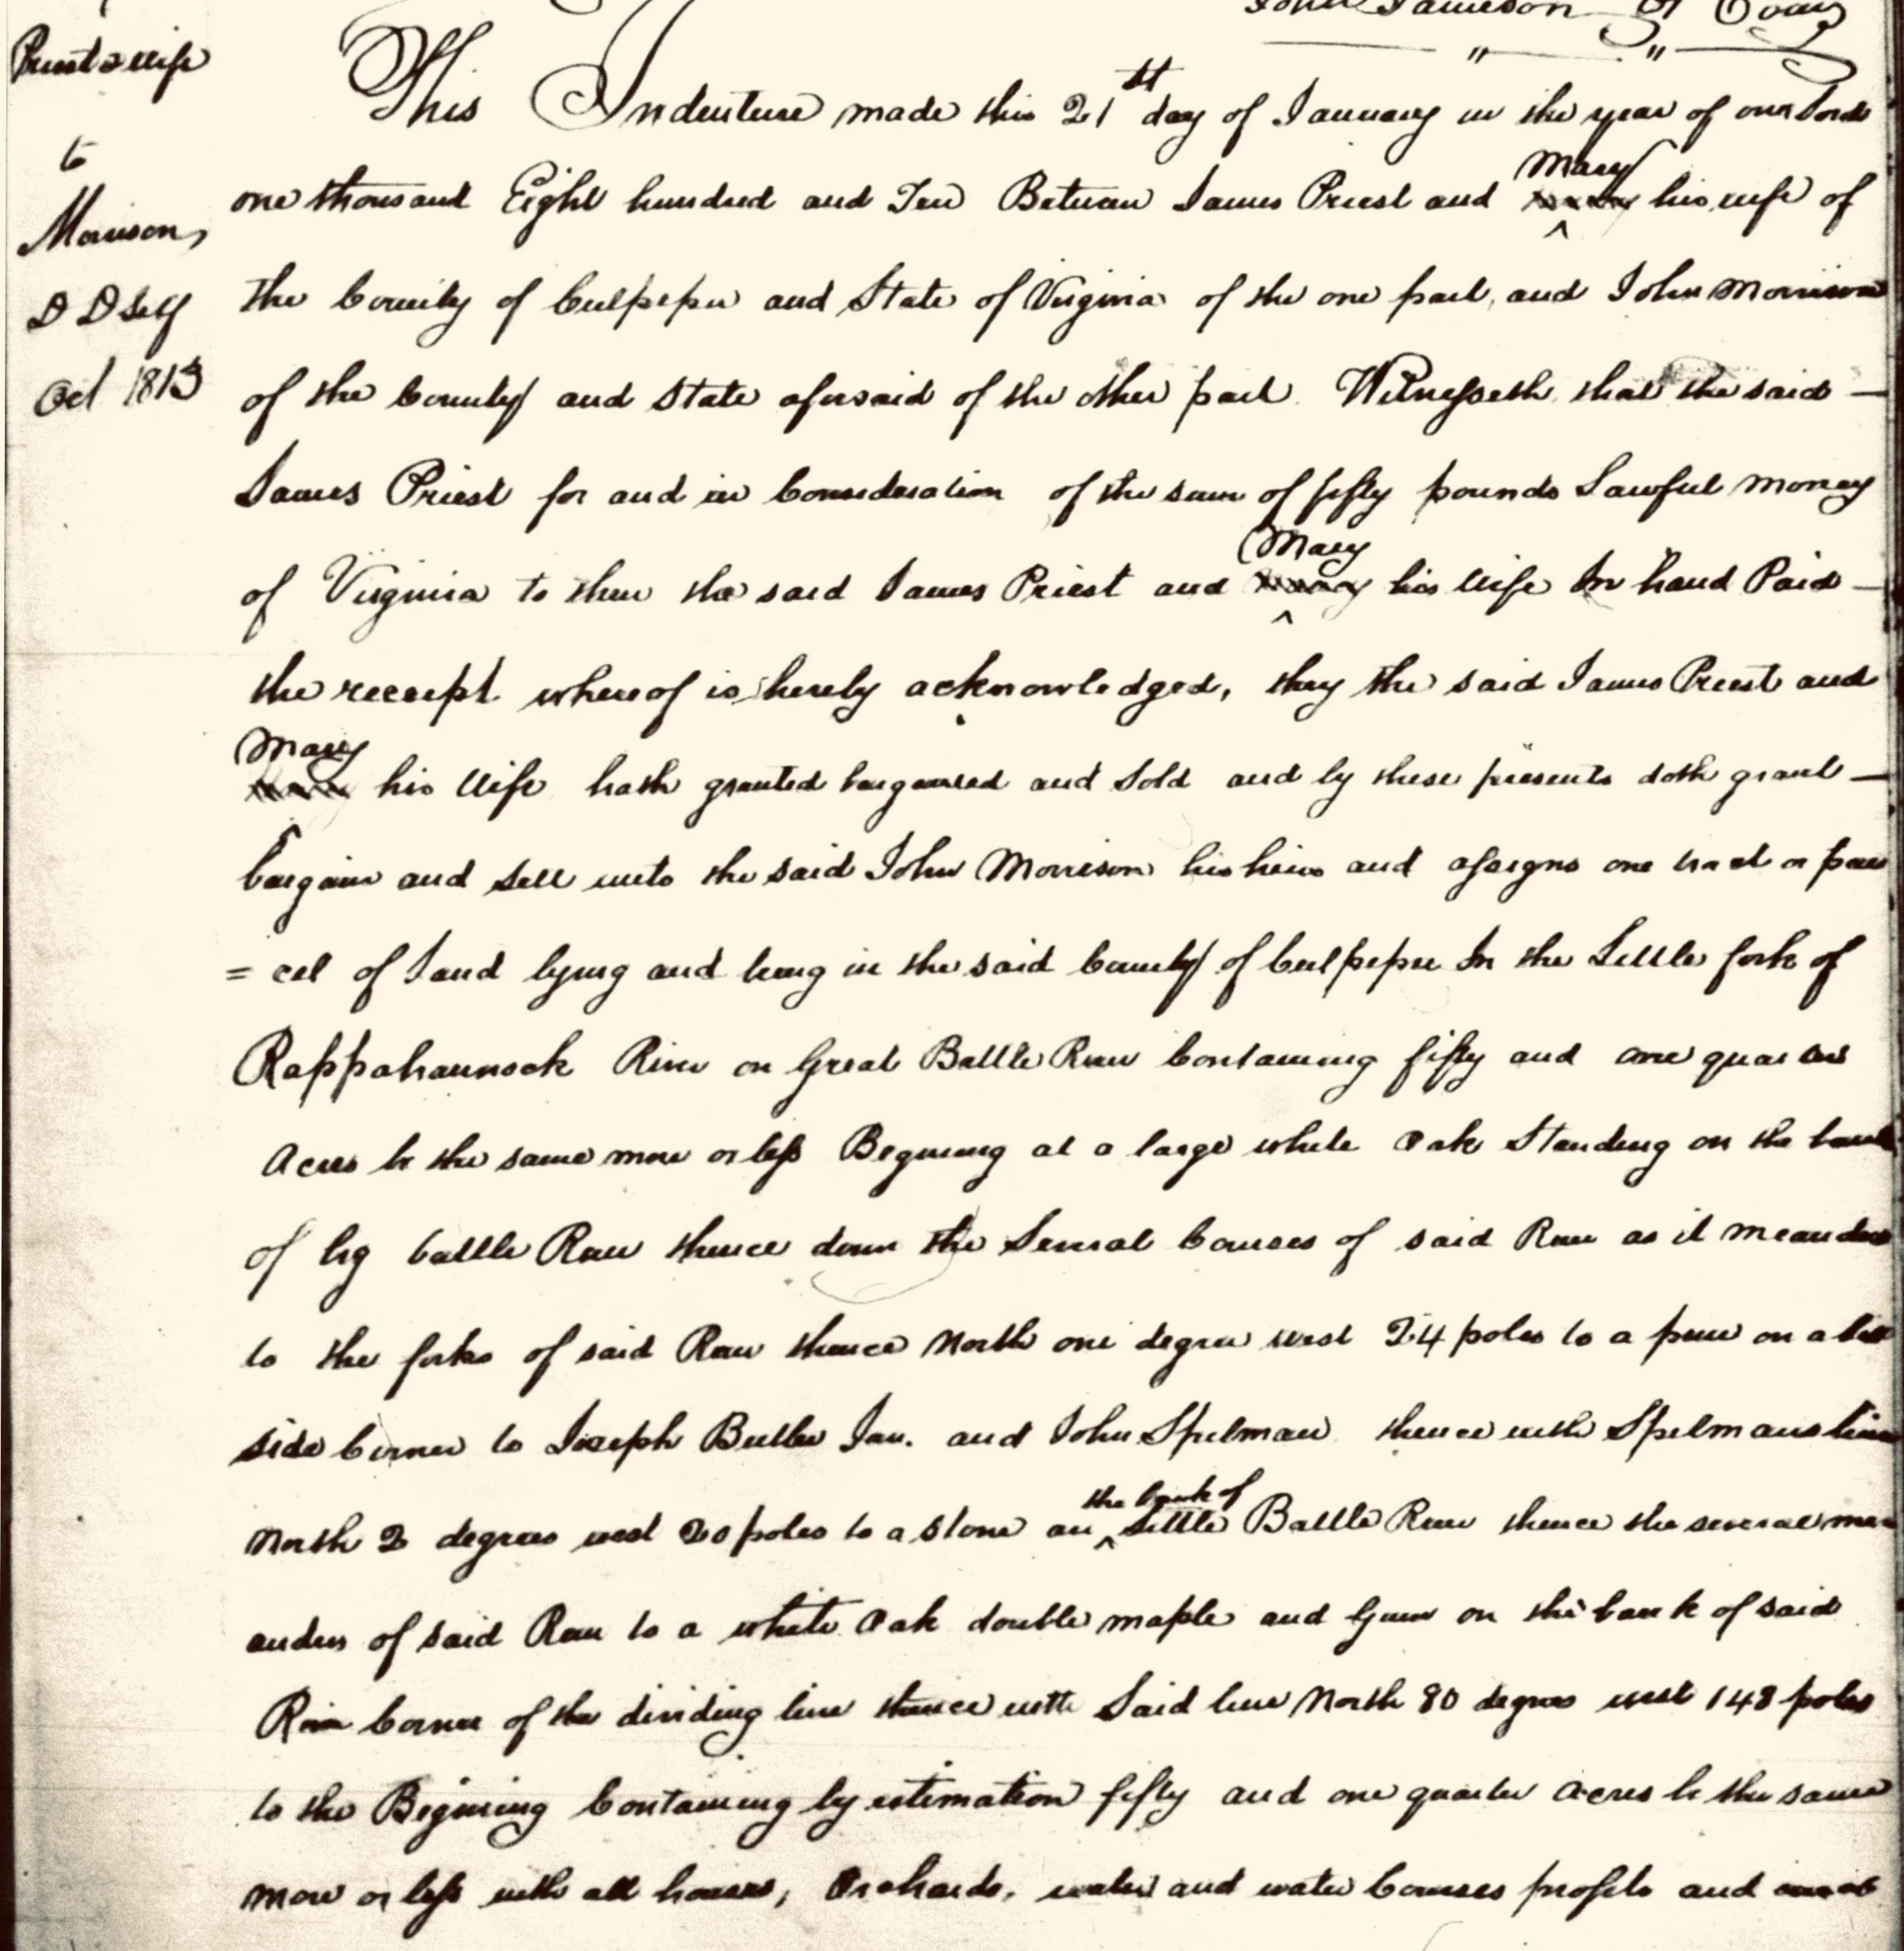 John Jameson
Priest & wife
to
Morrison
D D Self
Oct 1813
This Indenture made this 21st day of January in the year of our Lord
one thousand Eight hundred and Ten Between James Priest and Mary his wife of
the County of Culpeper and State of Virginia of the one part, and John Morrison
of the County and State aforesaid of the other part Witnesseth that the said —
James Priest for and in Consideration of the sum of fifty pounds Lawful money
of Virginia to them the said James Priest and Mary his Wife In hand Paid —
the receipt whereof is hereby acknowledged, they the said James Priest and
Mary his Wife hath granted bargained and Sold and by these presents doth grant —
bargain and Sell unto the said John Morrison his heirs and assigns one tract or par
= cel of Land lying and being in the said County of Culpeper In the Little fork of
Rappahannock River on Great Battle Run Containing fifty and one quarter
Acres be the same more or less Begining at a large white Oak Standing on the bank
of big battle Run thence down the Several Courses of said Run as it meanders
to the forks of said Run thence North one degree west 24 poles to a pine on a hill
side Corner to Joseph Butler Jun. and John Spilman thence with Spilmans line
North 2 degrees west 20 poles to a Stone on the bank of Little Battle Run thence the several me
anders of said Run to a white Oak double maple and Gum on the bank of said
Run Corner of the dividing line thence with Said line North 80 degrees west 148 poles
to the Begining Containing by estimation fifty and one quarter acres be the same
more or less with all houses, Orchards, water and water Courses profits and